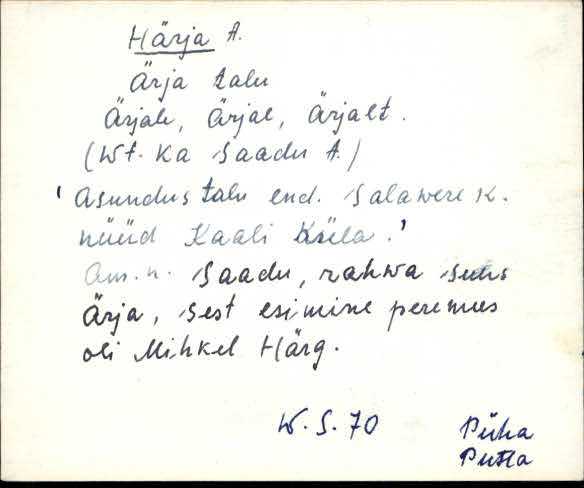 Härja A.
Ärja talu
Ärjale, Ärjal, Ärjalt.
(Wt. ka Saadu A.)
'Asundustalu end. Salawere k.
nüüd Kaali küla.'
Am. n. Saadu, rahwa suus
Ärja, sest esimine peremees
oli Mihkel Härg.
W. S. 70
Püha
Putla